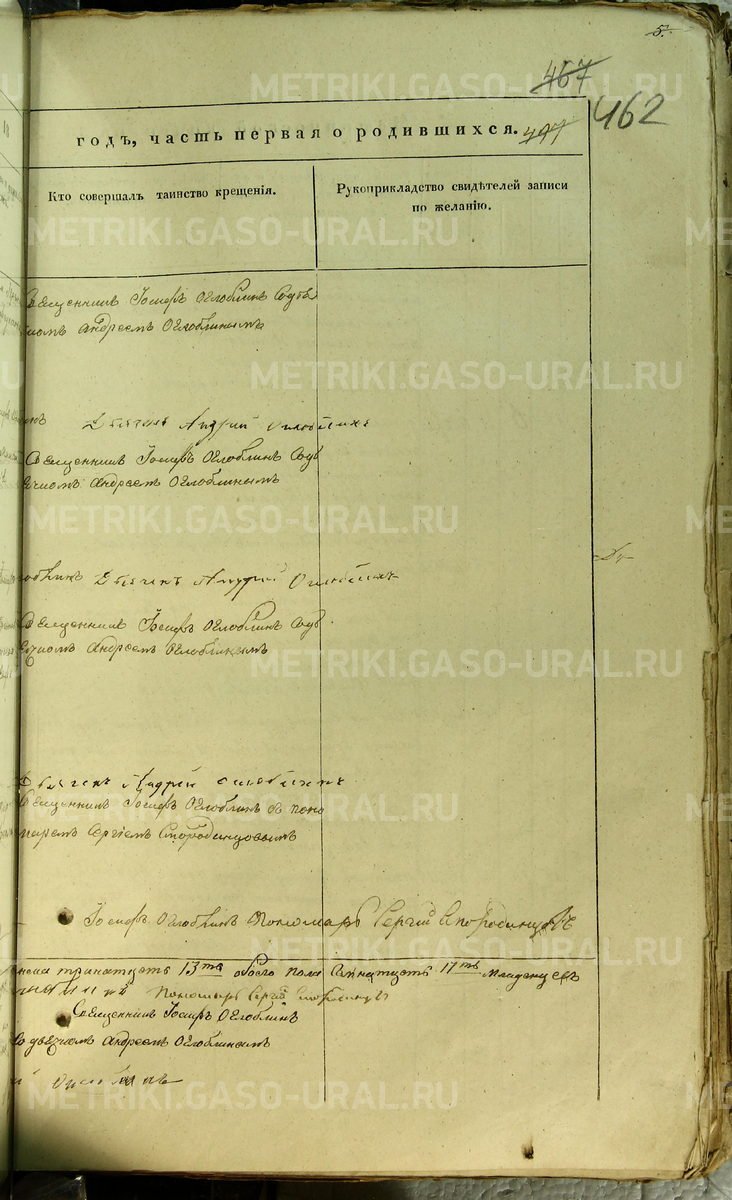 5.
467
462
годъ, часть первая о родившихся. 497
Кто совершалъ таинство крещенія.
Рукоприкладство свидѣтелей записи
по желанію.
Священникъ Іосифъ Оглоблинъ Содья
Андреемъ Оглоблинымъ
Дьячекъ Андрей Оглоблинъ
Священникъ Іосифъ Оглоблинъ Содь
ячкомъ Андреемъ Оглоблинымъ
Дьячекъ Андрей Оглоблинъ
Священникъ Іосифъ Оглоблинъ Содь
ячкомъ Андреемъ Оглоблинымъ
Дьячекъ Андрей Оглоблинъ
Священникъ Іосифъ Оглоблинъ съ поно
маремъ Сергіемъ Смородинцовымъ
Іосифъ Оглоблинъ Пономарь Сергій Смородинцовъ
тринатцеть 13ть обоего пола 17ть Младенцевъ
Пономарь Сергій
Священникъ Іосифъ Оглоблинъ
Содьячкомъ Андреемъ Оглоблинымъ
Оглоблинъ
METRIKI.GASO-URAL.RU